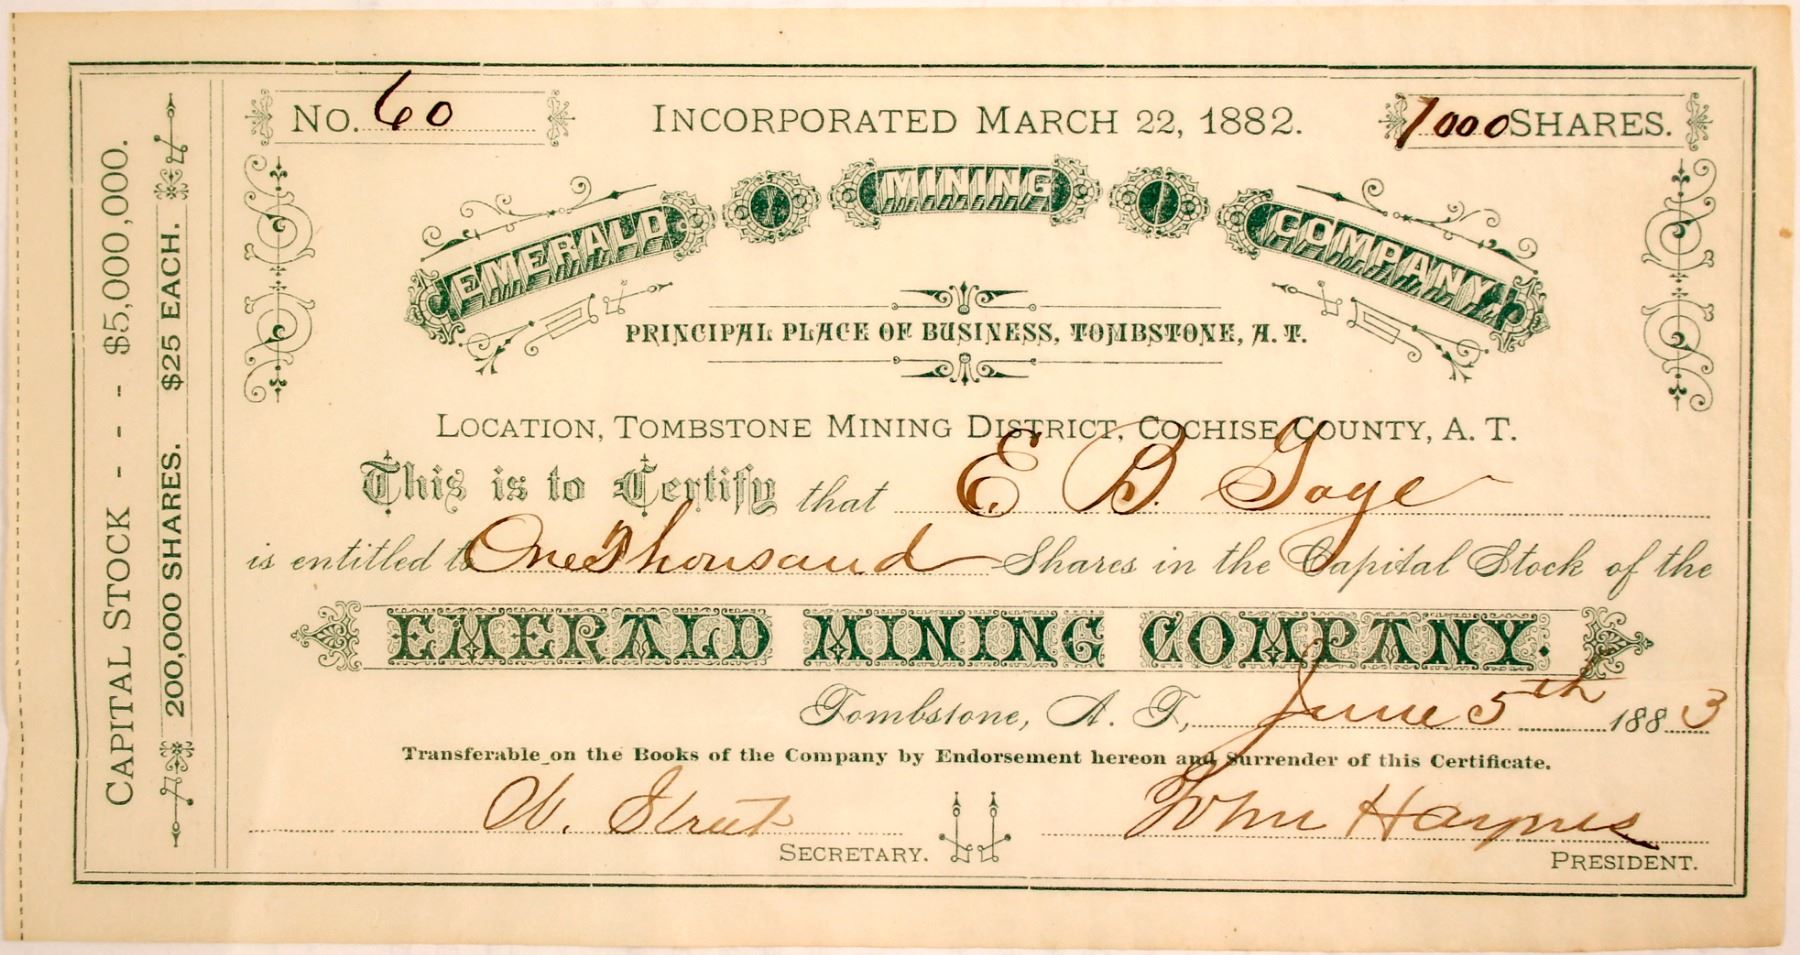 No. 60
INCORPORATED MARCH 22, 1882.
1000 SHARES.
EMERALD MINING COMPANY
PRINCIPAL PLACE OF BUSINESS, TOMBSTONE, A. T.
LOCATION, TOMBSTONE MINING DISTRICT, COCHISE COUNTY, A. T.
This is to Certify that E B. Gage
is entitled to One Thousand Shares in the Capital Stock of the
EMERALD MINING COMPANY.
Tombstone, A. T., June 5th 1883
Transferable on the Books of the Company by Endorsement hereon and Surrender of this Certificate.
W. Street John Haynes
SECRETARY. PRESIDENT.
CAPITAL STOCK - - - $5,000,000.
200,000 SHARES. $25 EACH.